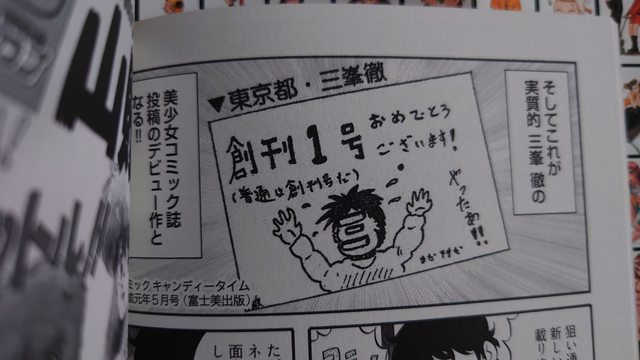 そしてこれが
実質的 三峯 徹の
▼東京都・三峯徹
創刊1号
おめでとう
ございます!
(普通は創刊号だ)
やったぁ!!
美少女コミック誌
投稿のデビュー作と
なる!!
ミック キャンディータイム
成元年5月号(富士美出版)
狙い
新し
載り
たネ
面し